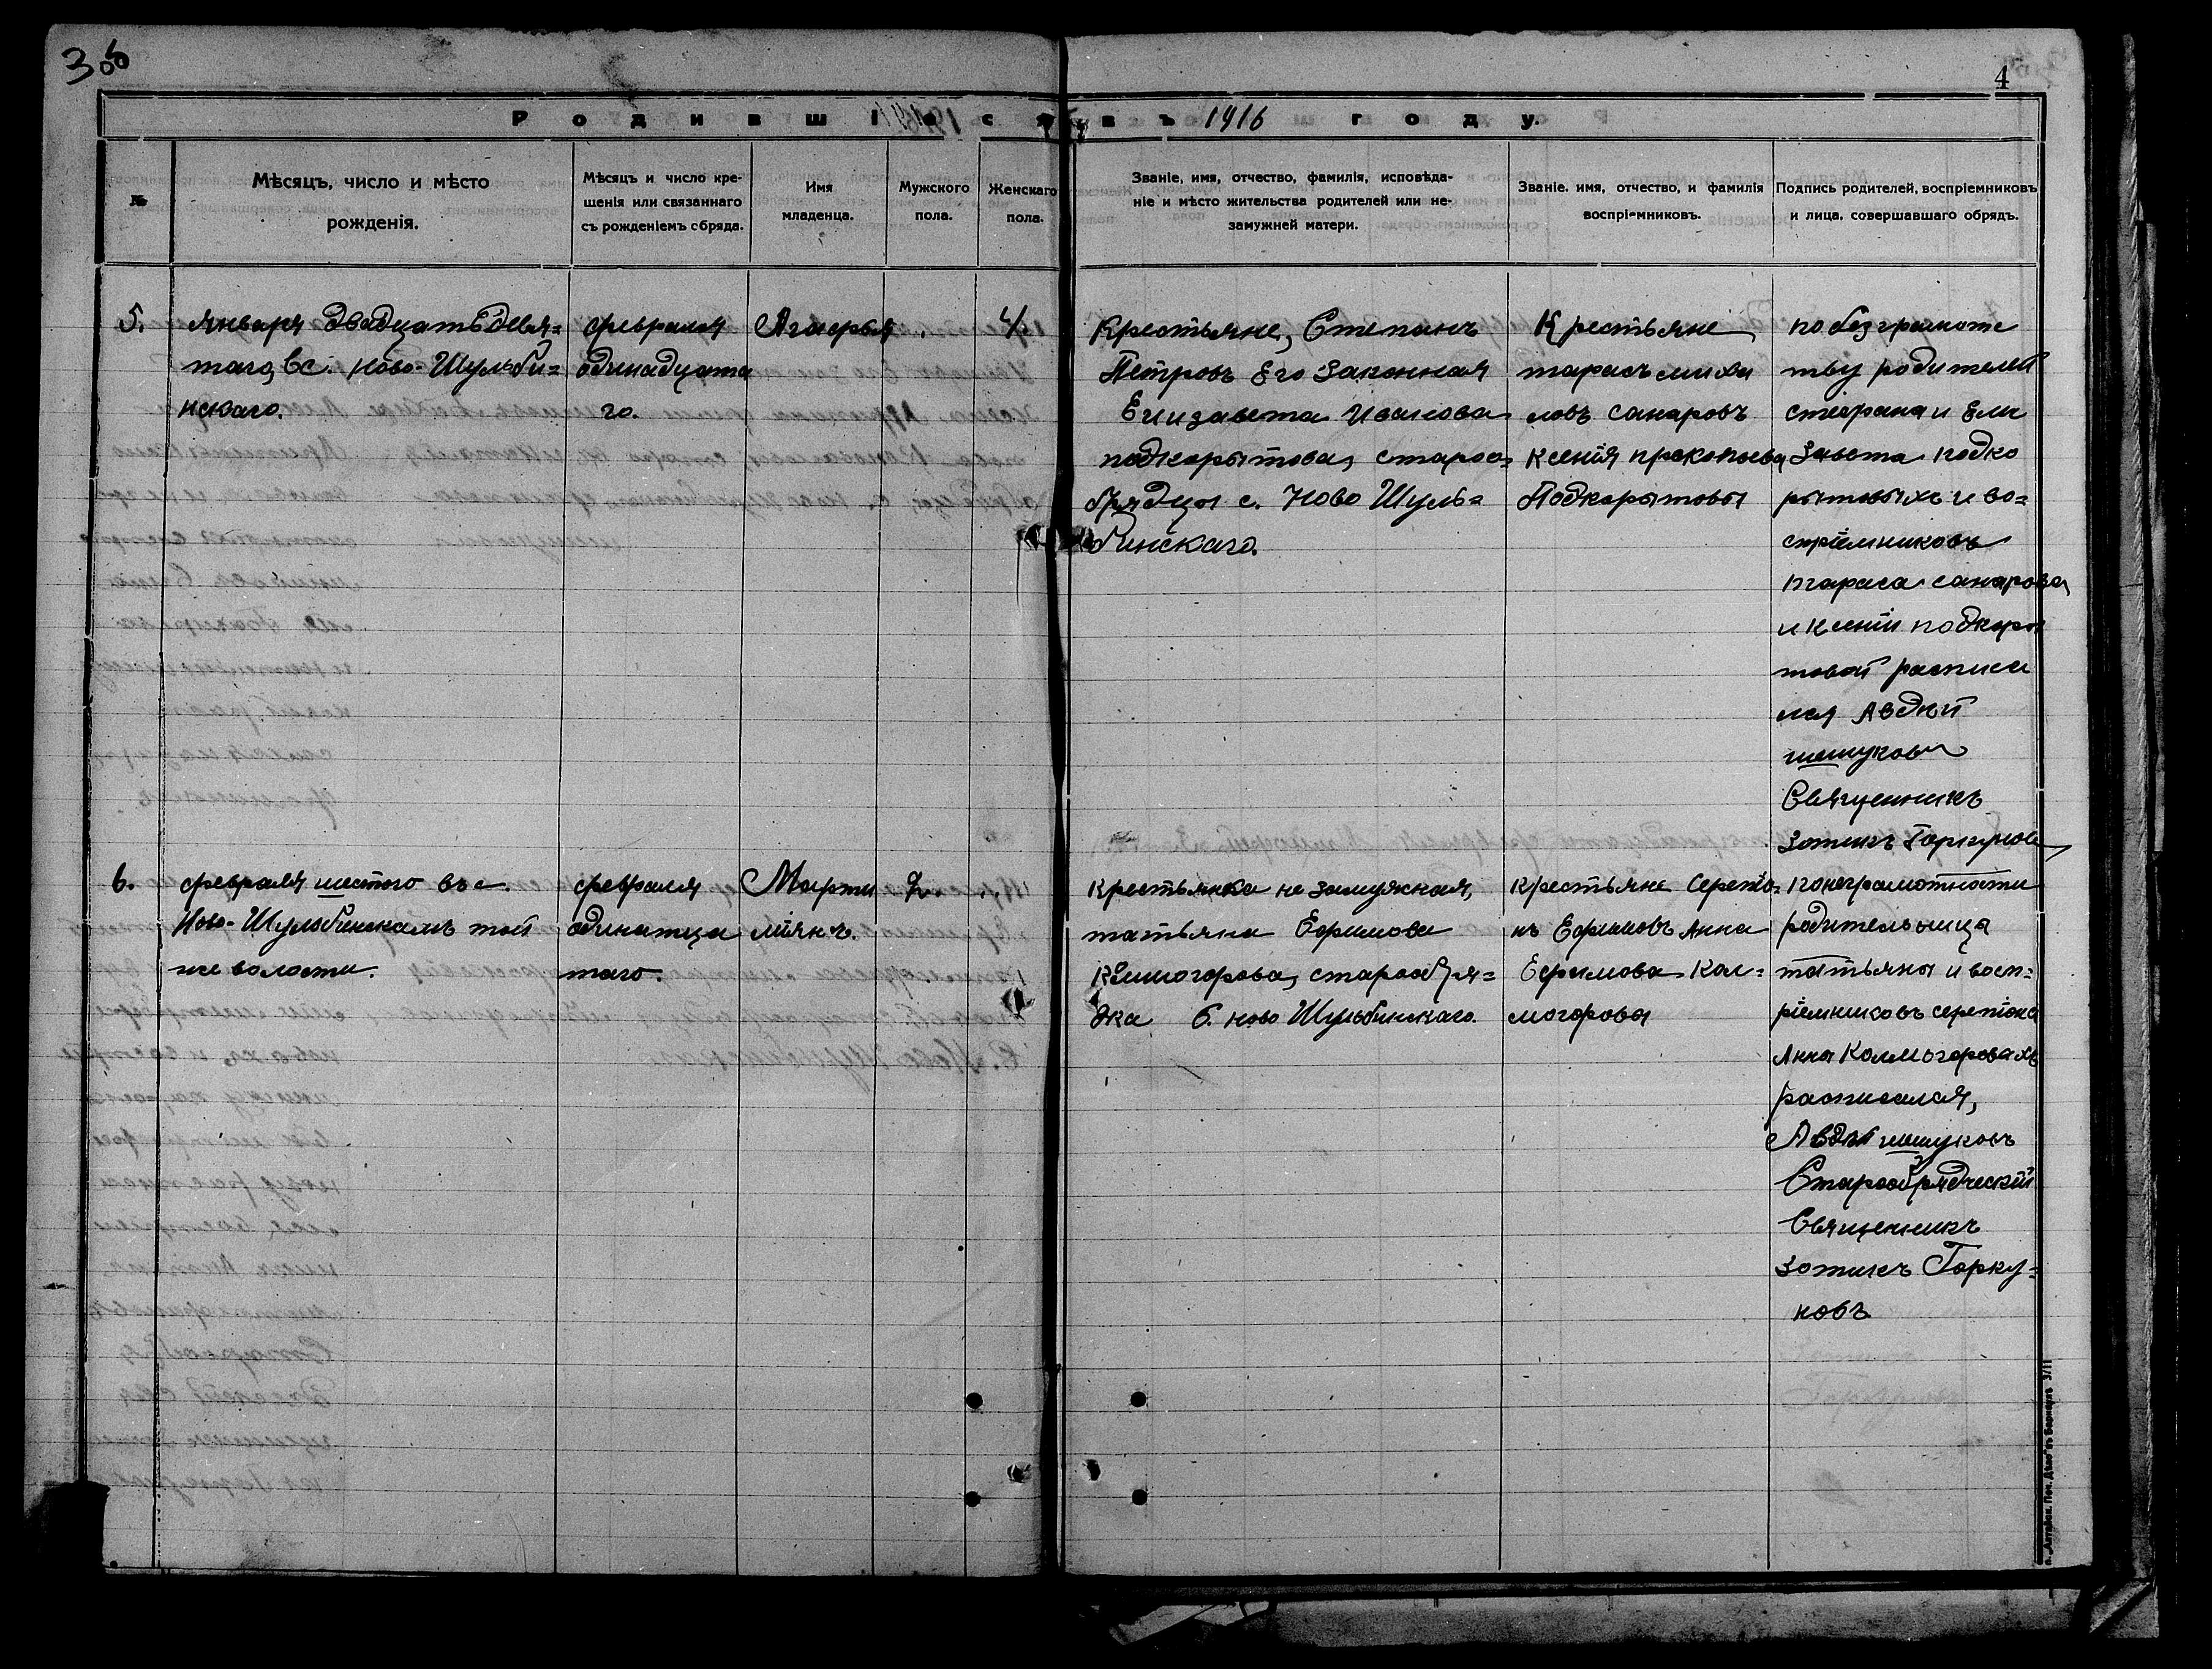 306
4
Родившіеся въ 1916 году.
№
Мѣсяцъ, число и мѣсто
рожденія.
Мѣсяцъ и число кре-
щенія или связаннаго
съ рожденіемъ обряда.
Имя
младенца.
Мужского
пола.
Женскаго
пола.
Званіе, имя, отчество, фамилія, исповѣда-
ніе и мѣсто жительства родителей или не-
замужней матери.
Званіе, имя, отчество, и фамилія
воспріемниковъ.
Подпись родителей, воспріемниковъ
и лица, совершавшаго обрядъ.
5.
января двадцать девя=
таго, вс. Ново-Шульби=
нскаго.
февраля
одинадцата
го.
Агафья
4.
Крестьяне, Степанъ
Петровъ Его Законная
Елизавета Иванова
подкорытова, староо=
брядцы с. Ново Шуль=
бинскаго.
Крестьяне
тарасъ михаи
ловъ санаровъ
ксенія прокопьева
Подкорытовы
по безграмотс
тву родителей
стефана и Ели
Завета подко
рытовыхъ и во=
спріемниковъ
тараса санарова
и ксеніи подкоры
товой расписа
лся Авдѣй
шешуковъ
Священникъ
Зотикъ Горкуновъ
6.
февраля шестого въ с.
Ново-Шульбинскомъ той
же волости.
февраля
одинатца
таго.
Марти
міянъ.
2.
крестьянка не замужная,
татьяна Ефимова
Колмогорова, старообря=
дка С. ново Шульбинскаго.
крестьяне Серапіо=
нъ Ефимовъ Анна
Ефимова Кол=
могоровы
понеграмотности
родительница
татьяны и восп=
ріемниковъ серапіона
Анна Колмогоровахъ
расписался,
Авдѣй шешуковъ
Старообрядческій
Священникъ
Зотикъ Горку=
новъ